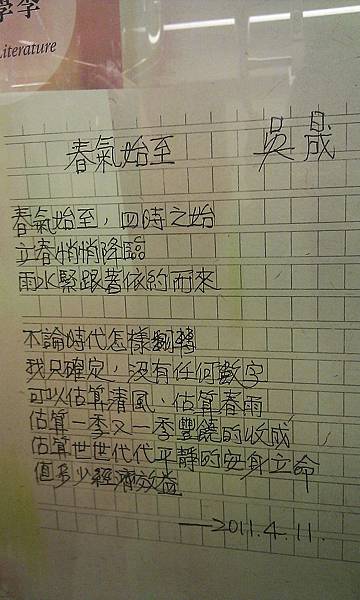 學學
Literature
春氣始至 吳晟
春氣始至，四時之始
立春悄悄降臨
雨水緊跟著依約而來
不論時代怎樣翻轉
我只確定，沒有任何數字
可以估算清風、估算春雨
估算一季又一季豐饒的收成
估算世世代代平靜的安身立命
值多少經濟效益
——2011.4.11.